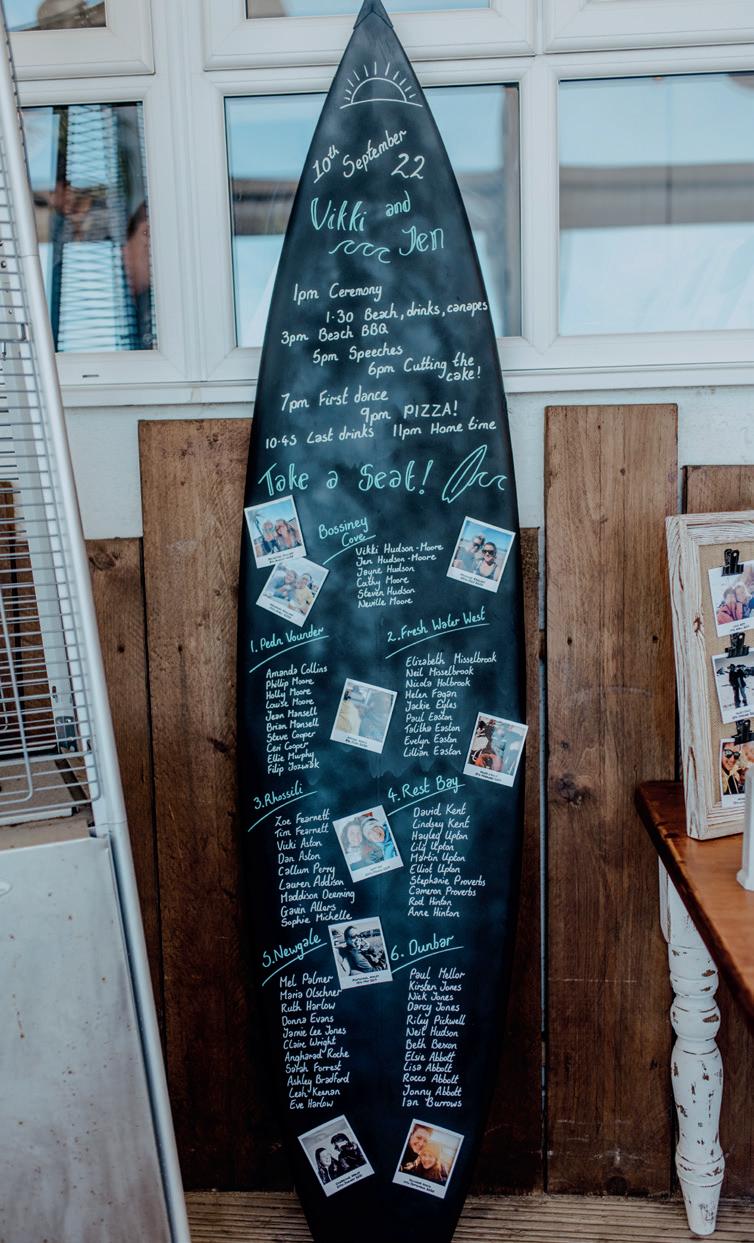 10th September 22
Vikki and
Jen
1pm Ceremony
1·30 Beach, drinks, canapes
3pm Beach BBQ
5pm Speeches
6pm Cutting the
cake!
7pm First dance
9pm PIZZA!
10·45 Last drinks 11pm Home time
Take a Seat!
Bossiney
Cove
Vikki Hudson-Moore
Jen Hudson-Moore
Jayne Hudson
Cathy Moore
Steven Hudson
Neville Moore
1. Pedn Vounder
Amanda Collins
Phillip Moore
Holly Moore
Louise Moore
Jean Mansell
Brian Mansell
Steve Cooper
Ceri Cooper
Ellie Murphy
Filip Jozwiak
2. Fresh Water West
Elizabeth Misselbrook
Neil Misselbrook
Nicola Holbrook
Helen Fagan
Jackie Eyles
Paul Easton
Talitha Easton
Evelyn Easton
Lillian Easton
3. Rhossili
Zoe Fearnett
Tim Fearnett
Vicki Aston
Dan Aston
Callum Perry
Lauren Addison
Maddison Deeming
Gavin Allars
Sophie Michelle
4. Rest Bay
David Kent
Lindsey Kent
Hayley Upton
Lily Upton
Martin Upton
Elliot Upton
Stephanie Proverbs
Cameron Proverbs
Rod Hinton
Anne Hinton
5. Newgale
Mel Palmer
Maria Olschner
Ruth Harlow
Donna Evans
Jamie Lee Jones
Claire Wright
Angharad Roche
Sarah Forrest
Ashley Bradford
Leah Keenan
Eve Harlow
6. Dunbar
Paul Mellor
Kirsten Jones
Nick Jones
Darcy Jones
Riley Pickwell
Neil Hudson
Beth Bexon
Elsie Abbott
Lisa Abbott
Rocco Abbott
Jonny Abbott
Ian Burrows